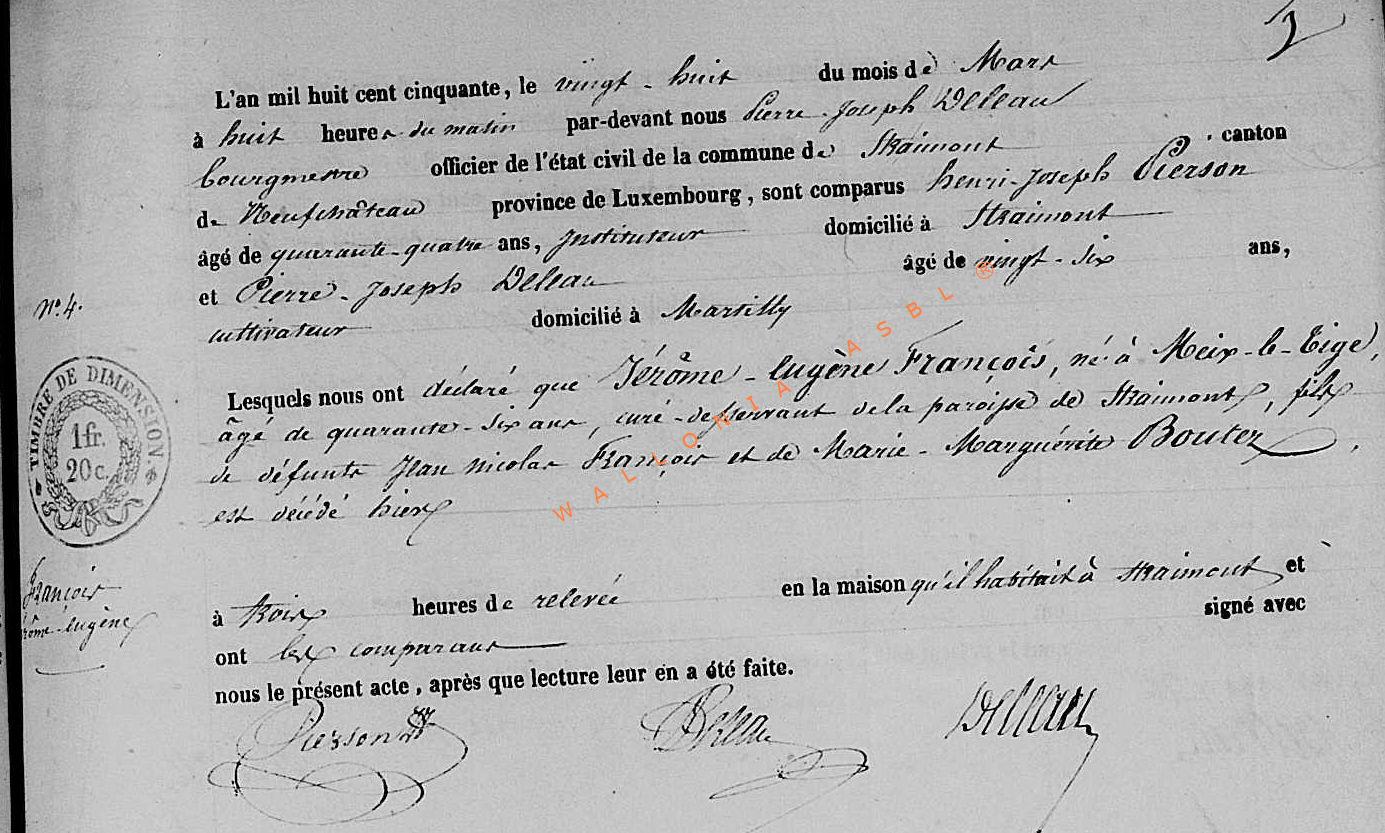 2
L'an mil huit cent cinquante, le vingt-huit du mois de Mars
à huit heures du matin par-devant nous Pierre-Joseph Deleau
bourgmestre officier de l'état civil de la commune de Straimont canton
de Neufchâteau province de Luxembourg, sont comparus henri-Joseph Pierson
âgé de quarante-quatre ans, Instituteur domicilié à Straimont
et Pierre-Joseph Deleau âgé de vingt-six ans,
cultivateur domicilié à Martilly
N° 4.
Lesquels nous ont déclaré que Jérôme-Eugène François, né à Meix-le-Tige,
âgé de quarante-six ans, curé-desservant de la paroisse de Straimont, fils
de défunts Jean Nicolas François et de Marie-Marguérite Boutez,
est décédé hier
à trois heures de relevée en la maison qu'il habitait à Straimont et
ont les comparants signé avec
nous le présent acte, après que lecture leur en a été faite.
Pierson
Deleau
Deleau
TIMBRE DE DIMENSION
1 fr.
20 c.
François
rôme-Eugène
WALLONIA ASBL ®